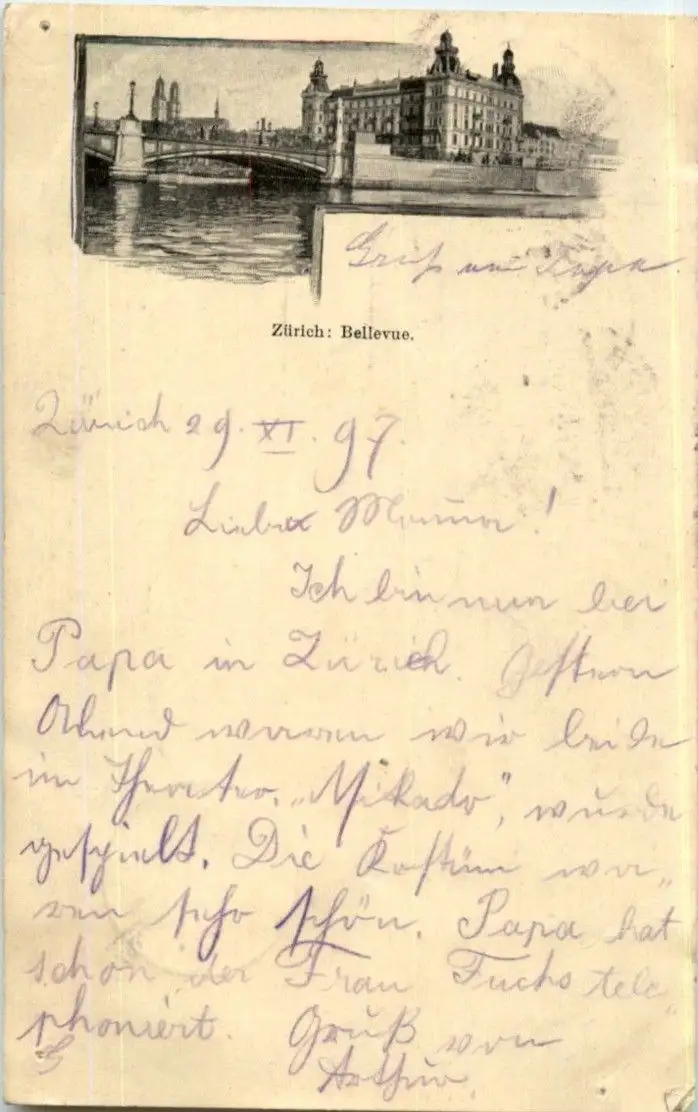 Gruß von Papa.
Zürich: Bellevue.
Zürich 29. XI. 97.
Liebe Mama!
Ich bin nun bei
Papa in Zürich. Gestern
Abend waren wir beide
im Theater. „Mikado", wurde
gespielt. Die Kostüm wa„
ren sehr schön. Papa hat
schon der Frau Fuchs tele„
phoniert. Gruß von
Arthur.